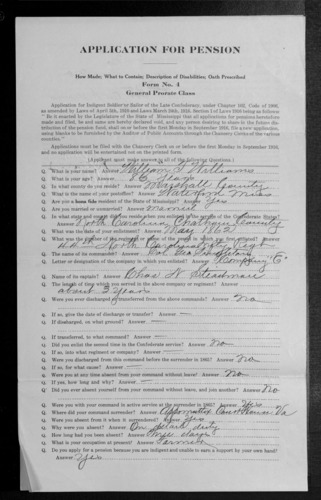 APPLICATION FOR PENSION
How Made; What to Contain; Description of Disabilities; Oath Prescribed
Form No. 4
General Prorate Class
Application for Indigent Soldier or Sailor of the Late Confederacy, under Chapter 102, Code of 1906,
as amended by Laws of April 5th, 1928 and Laws March 24th, 1916. Section 1 of Laws 1916 being as follows:
" Be it enacted by the Legislature of the State of Mississippi that all applications for pensions heretofore
made and filed, be and same are hereby declared void, and any person desiring to share in the future
tribution of the pension fund, shall on or before the first Monday in September 1916, file a new application,
using blanks to be furnished by the Auditor of Public Accounts through the Chancery Clerks of the various
counties."
Applications must be filed with the Chancery Clerk on or before the first Monday in September 1916,
and no application will be entertained not on the printed form.
(Applicant must make answer to all of the following Questions.)
Q. What is your name? Answer William S Williams
Q. What is your age? Answer Years
Q. In what county do you reside? Answer Marshall County
Q. What is the name of your postoffice? Answer Waterford Miss
Q. Are you a bona fide resident of the State of Mississippi? Answer Yes
Q. Are you married or unmarried? Answer Married
Q. In what state and county did you reside when you enlisted in the service of the Confederate States?
Answer North Carolina County
Q. What was the date of your enlistment? Answer May 1862
Q. What was the of the regiment or name of the vessel in which you first enlisted? Answer
North Carolina
Q. The name of its commander? Answer Col
Q. Letter or designation of the company in which you enlisted? Answer Company "E"
Q. Name of its captain? Answer Chas W Steadman
Q. The length of time which you served in the above company or regiment? Answer
about 3 Years
Q. Were you ever discharged or transferred from the above commands? Answer No
Q. If so, give the date of discharge or transfer? Answer —
Q. If discharged, on what ground? Answer —
Q. If transferred, to what command? Answer —
Q. Did you enlist the second time in the Confederate service? Answer No
Q. If so, into what regiment or company? Answer —
Q. Were you discharged from this command before the surrender in 1865? Answer No
Q. If so, for what cause? Answer —
Q. Were you at any time absent from your command without leave? Answer No
Q. If yes, how long and why? Answer —
Q. Did you ever absent yourself from your command without leave, and join another? Answer No
Q. Were you with your command in active service at the surrender in 1865? Answer Yes
Q. Where did your command surrender? Answer Appomattox Court House Va
Q. Were you absent from it when it surrendered? Answer Yes
Q. Why were you absent? Answer On detail duty
Q. How long had you been absent? Answer days
Q. What is your occupation at present? Answer Farmer
Q. Do you apply for a pension because you are indigent and unable to earn a support by your own hand?
Answer Yes